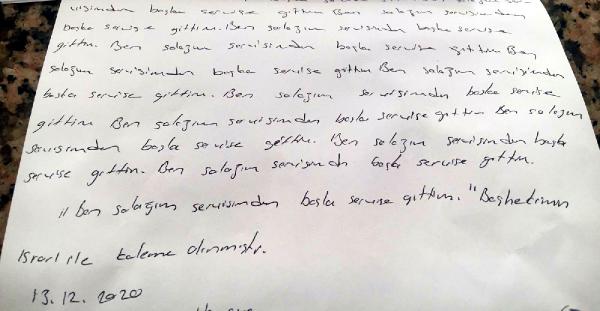 servisimden başka servise gittim Ben salağım servisimden
başka servise gittim. Ben salağım servisimden başka servise
gittim. Ben salağım servisimden başka servise gittim Ben
salağım servisimden başka servise gittim Ben salağım servisimden
başka servise gittim. Ben salağım servisimden başka servise
gittim Ben salağım servisimden başka servise gittim Ben salağım
servisimden başka servise gittim. Ben salağım servisimden başka
servise gittim. Ben salağım servisimden başka servise gittim.
" Ben salağım servisimden başka servise gittim. "Başhekimin
Israrı ile kaleme alınmıştır.
13.12.2020